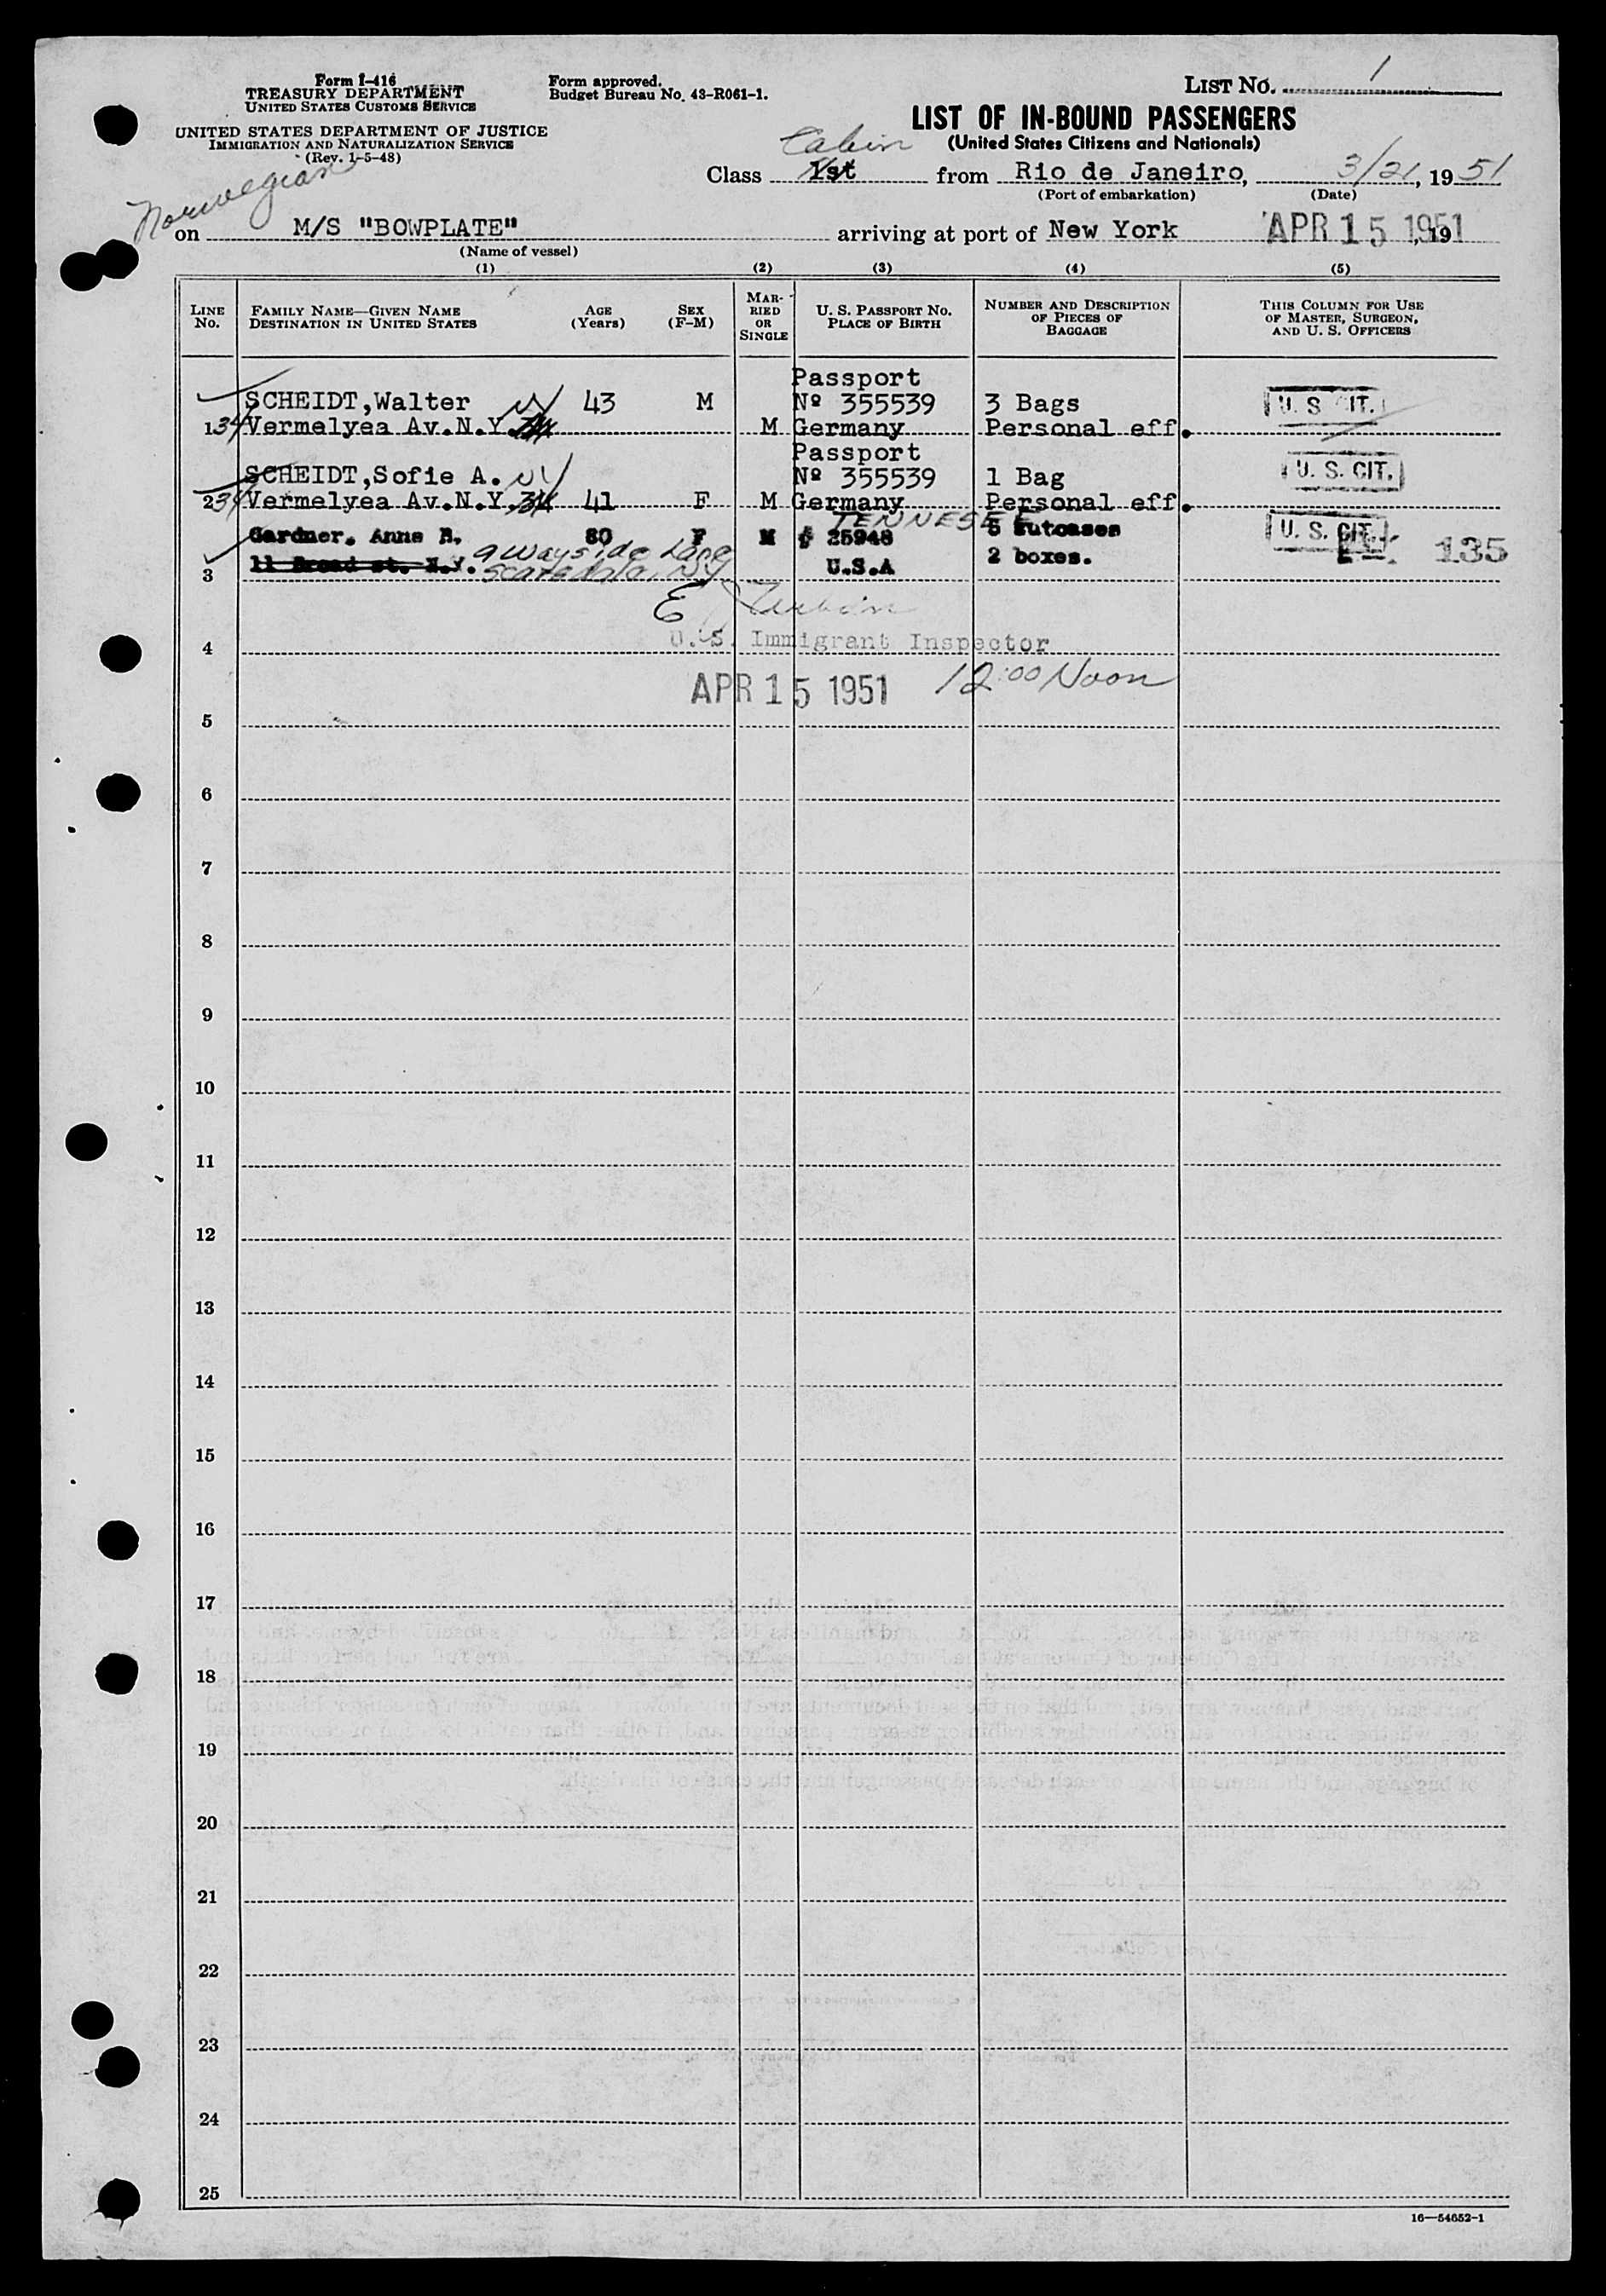 Form I-416
TREASURY DEPARTMENT
UNITED STATES CUSTOMS SERVICE
UNITED STATES DEPARTMENT OF JUSTICE
IMMIGRATION AND NATURALIZATION SERVICE
(Rev. 1-5-48)
Form approved.
Budget Bureau No. 43-R061-1.
LIST No. 1
LIST OF IN-BOUND PASSENGERS
(United States Citizens and Nationals)
Cabin
Class 1st from Rio de Janeiro, 3/21, 1951
(Port of embarkation) (Date)
Norwegian
on M/S "BOWPLATE" arriving at port of New York APR 15 1951, 19
(Name of vessel)
(1) (2) (3) (4) (5)
LINE No. FAMILY NAME—GIVEN NAME DESTINATION IN UNITED STATES AGE (Years) SEX (F-M) MARRIED OR SINGLE U. S. PASSPORT No. PLACE OF BIRTH NUMBER AND DESCRIPTION OF PIECES OF BAGGAGE THIS COLUMN FOR USE OF MASTER, SURGEON, AND U. S. OFFICERS
Passport
SCHEIDT,Walter 43 M Nº 355539 3 Bags U. S. CIT.
1 34 Vermelyea Av.N.Y. M Germany Personal eff.
Passport
SCHEIDT,Sofie A. NY Nº 355539 1 Bag U. S. CIT.
2 34 Vermelyea Av.N.Y. 34 41 F M Germany Personal eff.
TENNESEE
Gardner. Anne B. 80 F M # 25948 5 sutcases U. S. CIT. 135
3 11 Broad st. N.Y. 9 Wayside Lane Scarsdale, NY U.S.A 2 boxes.
E
U.S. Immigrant Inspector
4
APR 15 1951 12:00 Noon
5
6
7
8
9
10
11
12
13
14
15
16
17
18
19
20
21
22
23
24
25
16—54652-1